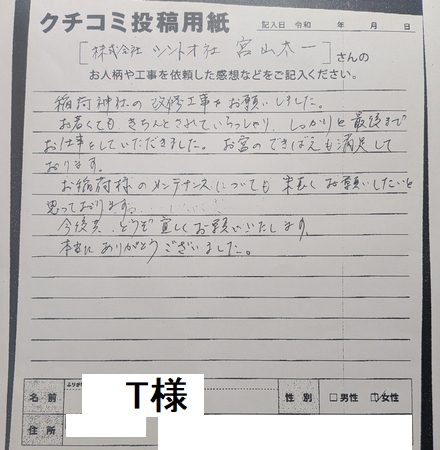 クチコミ投稿用紙
記入日 令和 年 月 日
[株式会社 シントオ社 宮山太一]さんの
お人柄や工事を依頼した感想などをご記入ください。
稲荷神社の改修工事をお願いしました。
お若くても きちんとされていらっしゃり、しっかりと最後まで
お仕事をしていただきました。お宮のできばえも満足して
おります。
お稲荷様のメンテナンスについても 末長くお願いしたいと
思っております。
今後共、どうぞ宜しくお願いいたします。
本当にありがとうございました。
名前
T様
性別 □男性 □女性
住所